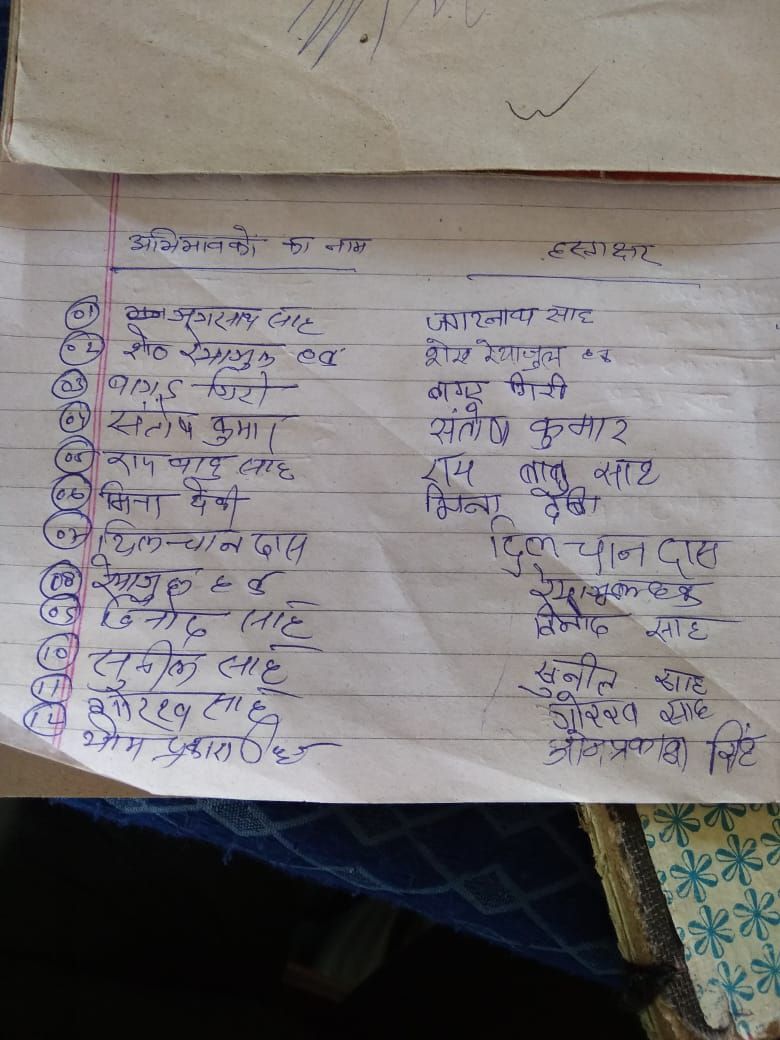 अभिभावकों का नाम हस्ताक्षर
01 जगरनाथ साह जगरनाथ साह
02 शेख रेयाजुल हक शेख रेयाजुल हक
03 बागड़ गिरी बागड़ गिरी
04 संतोष कुमार संतोष कुमार
05 राम बाबु साह राम बाबु साह
06 मिना देवी मिना देवी
07 दिलचान दास दिलचान दास
08 रेयाजुल हक रेयाजुल हक
09 विनोद साह विनोद साह
10 सुनील साह सुनील साह
11 गोरख साह गोरख साह
12 ओम प्रकाश सिंह ओमप्रकाश सिंह